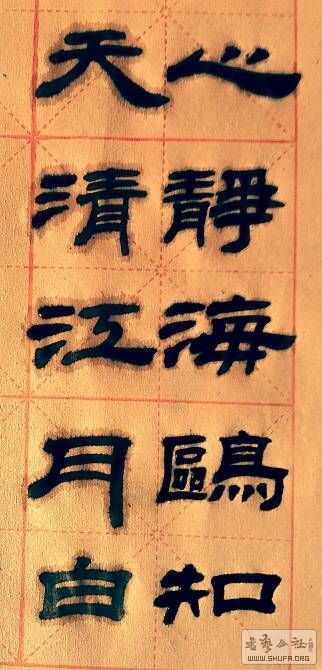 心靜海鷗知
天清江月白
WWW.SHUFA.ORG